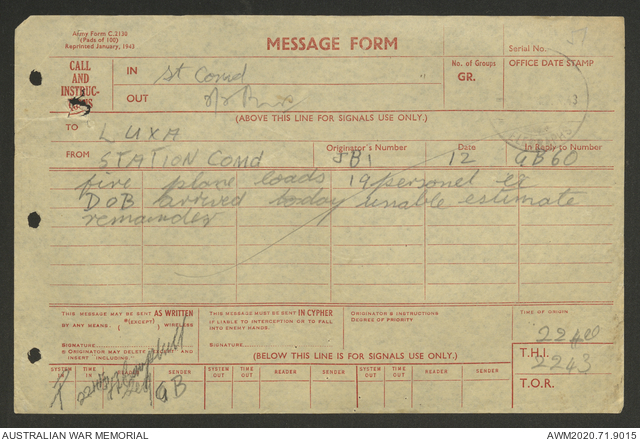 Army Form C.2130
(Pads of 100)
Reprinted January, 1943
MESSAGE FORM
Serial No.
CALL
AND
INSTRUC-
IN St Comd
OUT
No. of Groups
GR.
OFFICE DATE STAMP
(ABOVE THIS LINE FOR SIGNALS USE ONLY.)
TO LUXA
FROM STATION COMD
Originator's Number JB1
Date 12
In Reply to Number GB60
five plane loads 19 personel ex
DOB arrived today unable estimate
remainder
THIS MESSAGE MAY BE SENT AS WRITTEN
BY ANY MEANS. (EXCEPT) WIRELESS
SIGNATURE
ORIGINATOR MAY DELETE EXCEPT AND
INSERT INCLUDING.
THIS MESSAGE MUST BE SENT IN CYPHER
IF LIABLE TO INTERCEPTION OR TO FALL
INTO ENEMY HANDS.
SIGNATURE
ORIGINATOR'S INSTRUCTIONS
DEGREE OF PRIORITY
TIME OF ORIGIN
2240
T.H.I. 2243
T.O.R.
(BELOW THIS LINE IS FOR SIGNALS USE ONLY.)
SYSTEM IN TIME IN READER SENDER SYSTEM OUT TIME OUT READER SENDER SYSTEM OUT TIME OUT READER SENDER SYSTEM OUT TIME OUT READER SENDER
GB
AUSTRALIAN WAR MEMORIAL
AWM2020.71.9015